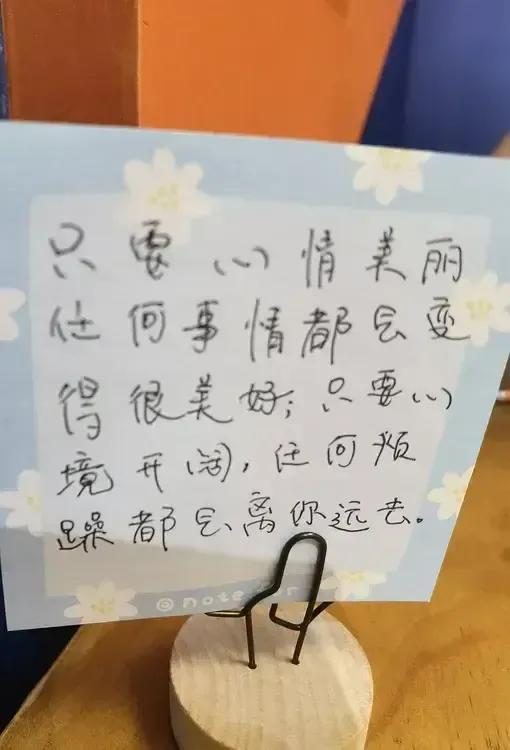 只要心情美丽
任何事情都会变
得很美好；只要心
境开阔，任何烦
躁都会离你远去。
@note